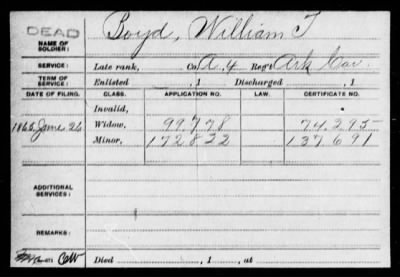 DEAD
NAME OF SOLDIER: Boyd, William T
SERVICE: Late rank, Co. A, 4 Reg't Ark Cav.
TERM OF SERVICE: Enlisted , 1 Discharged , 1
DATE OF FILING. CLASS. APPLICATION NO. LAW. CERTIFICATE NO.
Invalid,
1865 June 26 Widow, 99.778 74.295
Minor, 172.822 137.691
ADDITIONAL SERVICES:
REMARKS:
Died , 1 , at